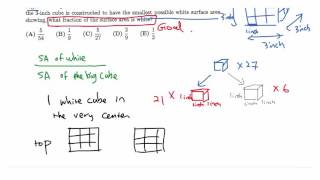 the 3-inch cube is constructed to have the smallest possible white surface area
showing, what fraction of the surface area is white?
(A) 5/54 (B) 1/9 (C) 5/27 (D) 2/9 (E) 1/3
Goal
3inch
1inch
3inch
SA of white
SA of the big cube
× 27
21 × 1inch
1inch
1inch
1inch
× 6
1 white cube in
the very center
top